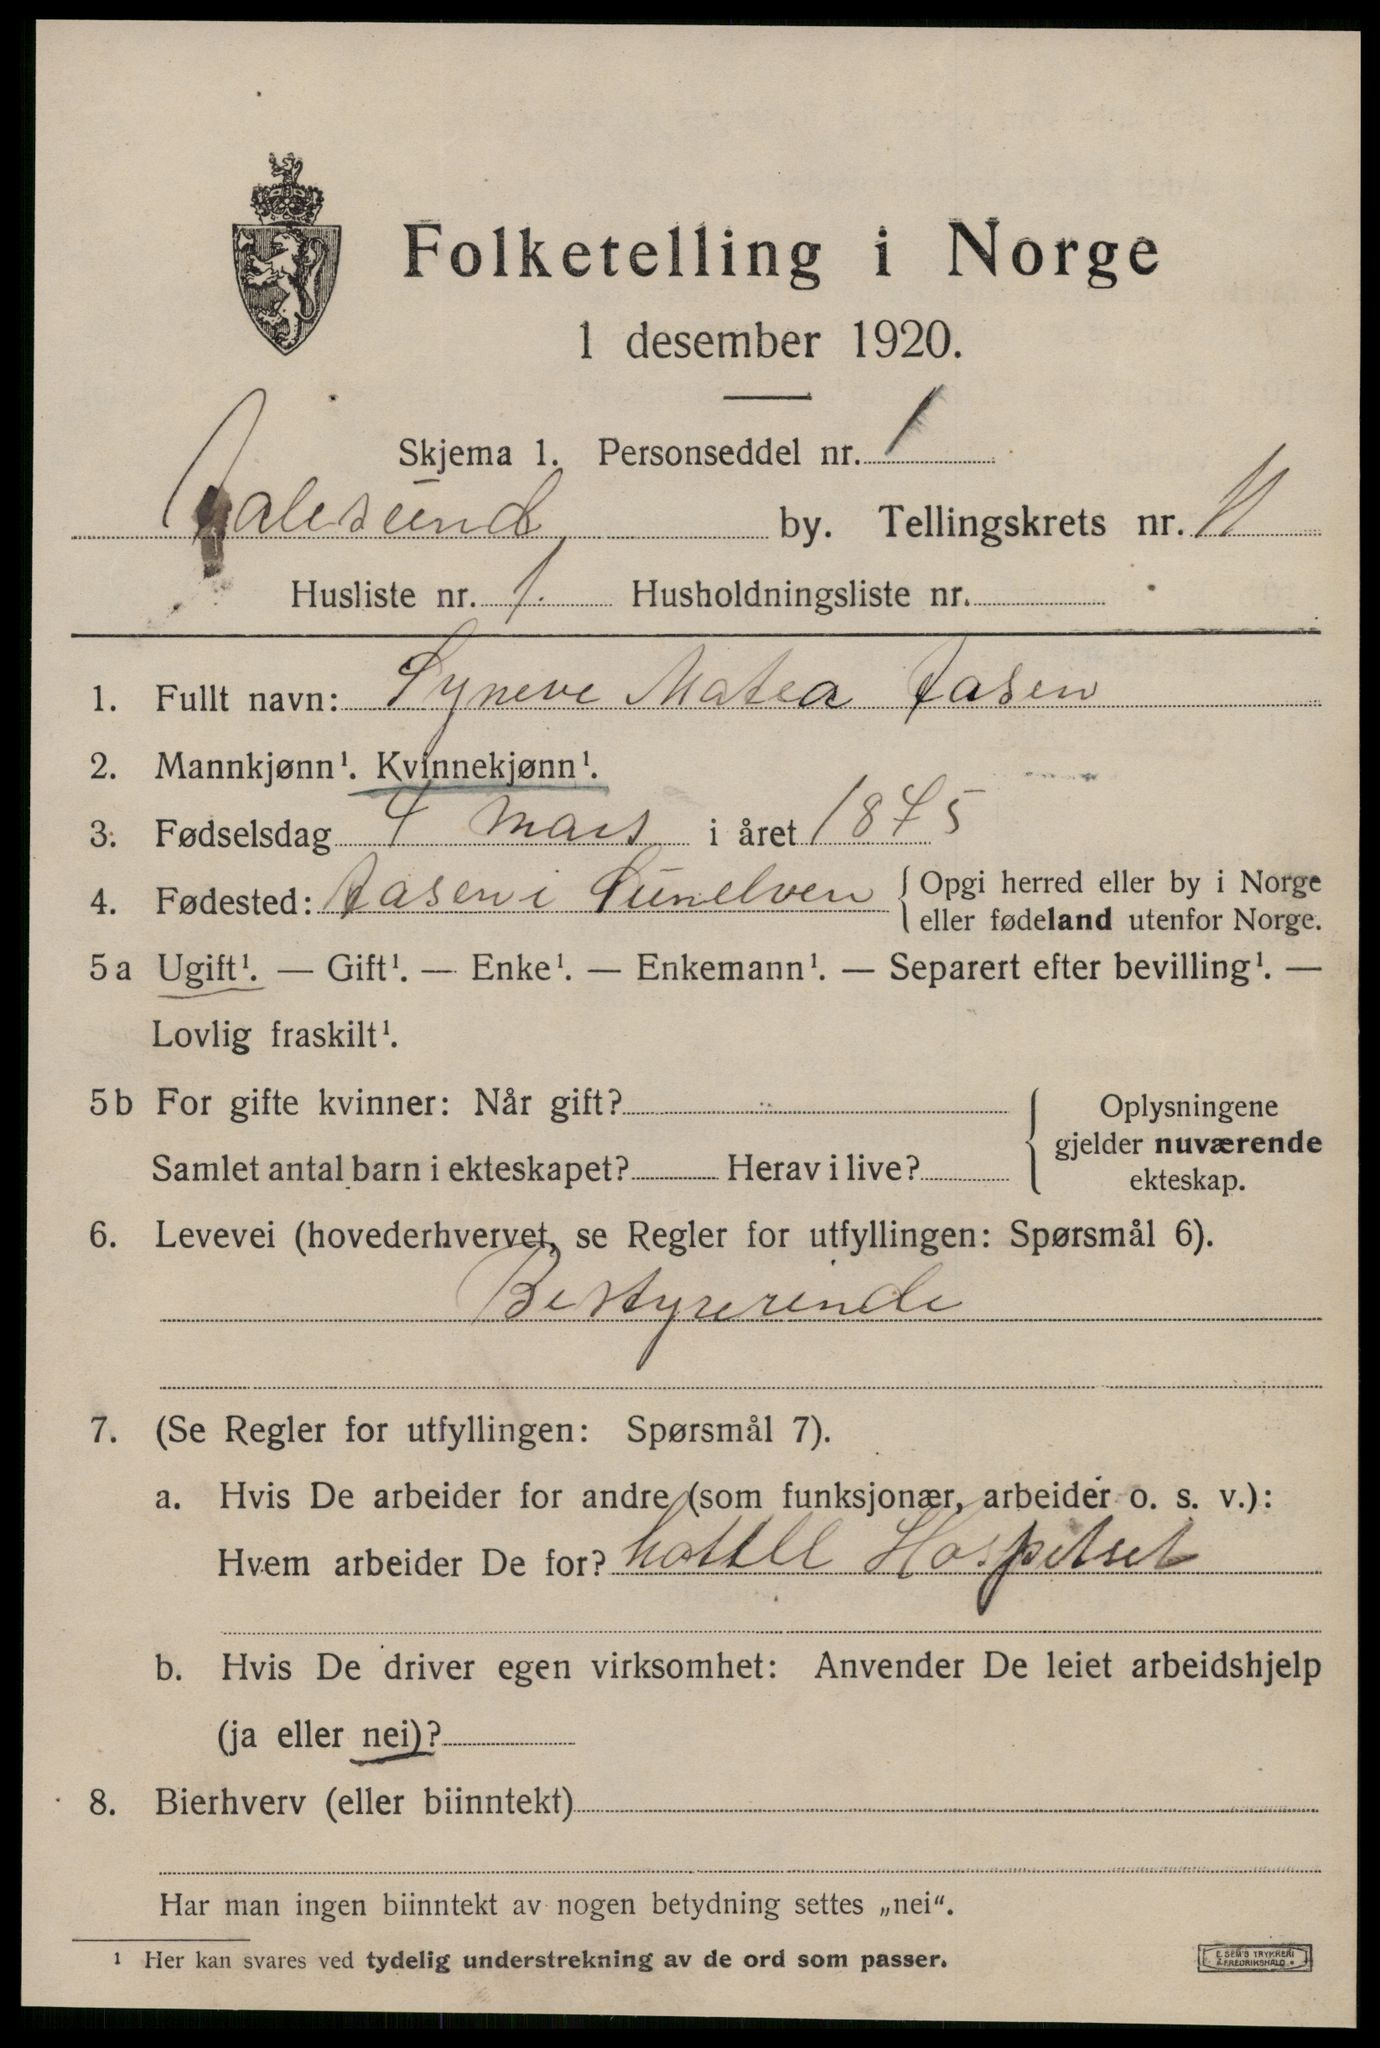 Folketelling i Norge
1 desember 1920.
Skjema 1. Personseddel nr. 1
Aalesund by. Tellingskrets nr. 11
Husliste nr. 1. Husholdningsliste nr.
1. Fullt navn: Syneve Matea Aasen
2. Mannkjønn¹. Kvinnekjønn¹.
3. Fødselsdag 4 Mars i året 1875
4. Fødested: Aasen i Sunelven { Opgi herred eller by i Norge
eller fødeland utenfor Norge.
5a Ugift¹. — Gift¹. — Enke¹. — Enkemann¹. — Separert efter bevilling¹. —
Lovlig fraskilt¹.
5b For gifte kvinner: Når gift?
Samlet antal barn i ekteskapet? Herav i live?
{ Oplysningene
gjelder nuværende
ekteskap.
6. Levevei (hovederhvervet, se Regler for utfyllingen: Spørsmål 6).
Bestyrerinde
7. (Se Regler for utfyllingen: Spørsmål 7).
a. Hvis De arbeider for andre (som funksjonær, arbeider o. s. v.):
Hvem arbeider De for? hotell Hospitset
b. Hvis De driver egen virksomhet: Anvender De leiet arbeidshjelp
(ja eller nei)?
8. Bierhverv (eller biinntekt)
Har man ingen biinntekt av nogen betydning settes „nei“.
¹ Her kan svares ved tydelig understrekning av de ord som passer.
E. SEM'S TRYKKERI
FREDRIKSHALD